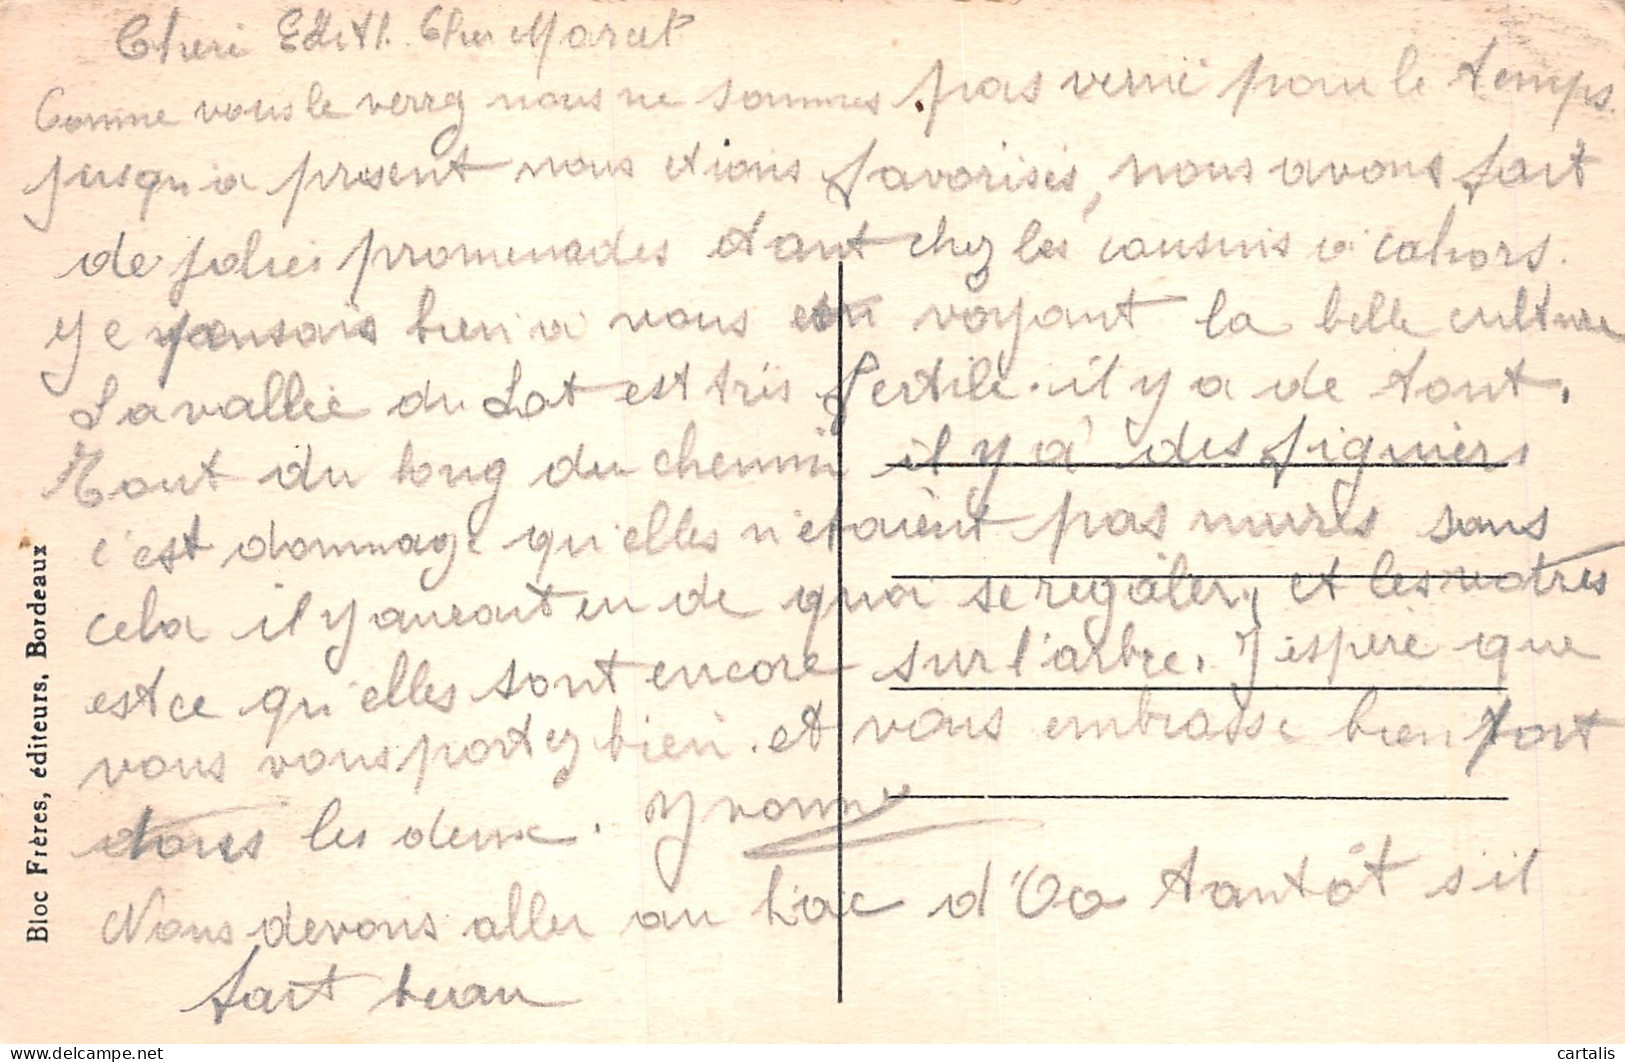 Cheri Edith. Cher Marcel
Comme vous le verrez nous ne sommes pas verni pour le temps.
jusqu'a present nous etions favorisés, nous avons fait
de jolies promenades etant chez les cousins à cahors.
je pensais bien à vous en voyant la belle culture
La vallée du Lot est très fertile. il y a de tout.
Tout du long du chemin il y a des figuiers
c'est dommage qu'elles n'étaient pas mures sans
cela il y aurait eu de quoi se regaler, et les votres
est ce qu'elles sont encore sur l'arbre. J'espère que
vous vous portez bien. et vous embrasse bien fort
tous les deux. Yvonne
Nous devons aller au Lac d'Oo tantôt s'il
fait beau
Bloc Frères, éditeurs, Bordeaux
cartalis